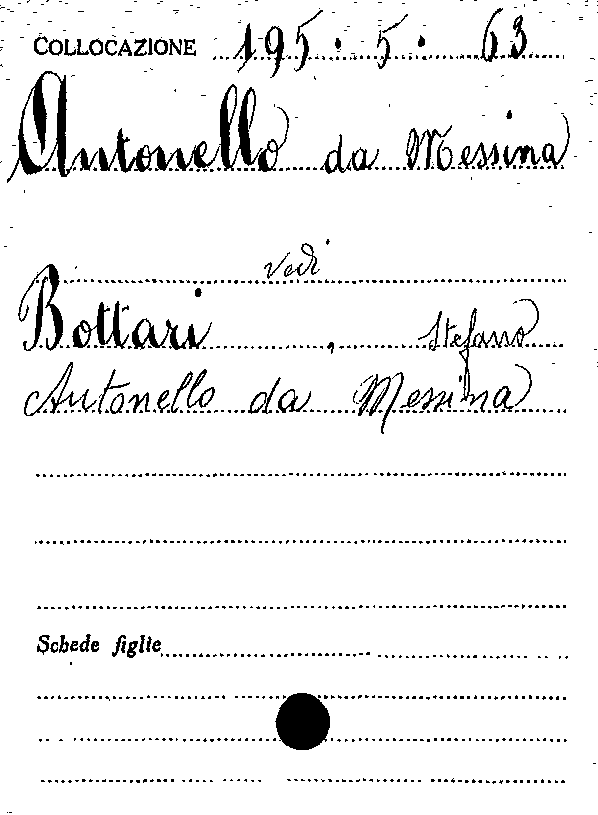 COLLOCAZIONE 195. 5. 63
Antonello da Messina
vedi
Bottari, Stefano
Antonello da Messina
Schede figlie